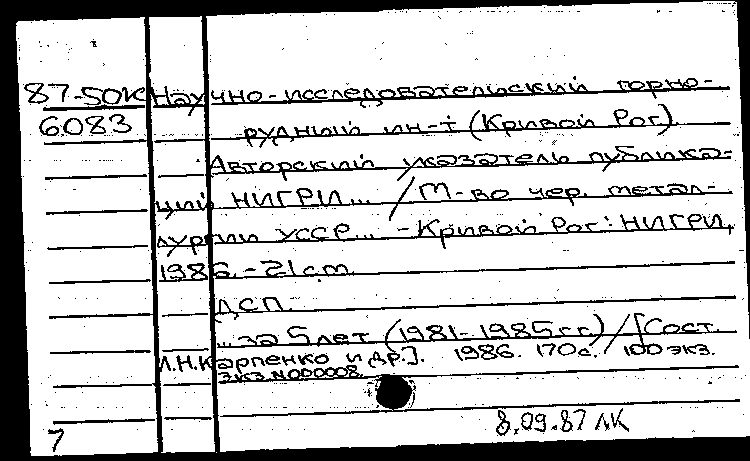 87-50к Научно-исследовательский горно-
6083 рудный ин-т (Кривой Рог).
Авторский указатель публика-
ций НИГРИ... / М-во чер. метал-
лургии УССР... - Кривой Рог: НИГРИ,
1986. - 21 см.
ДСП.
...за 5 лет (1981-1985 гг.) / [Сост.
Л.Н.Карпенко и др.]. 1986. 170 с. 100 экз.
Экз.N000008.
8.09.87 ЛК
7